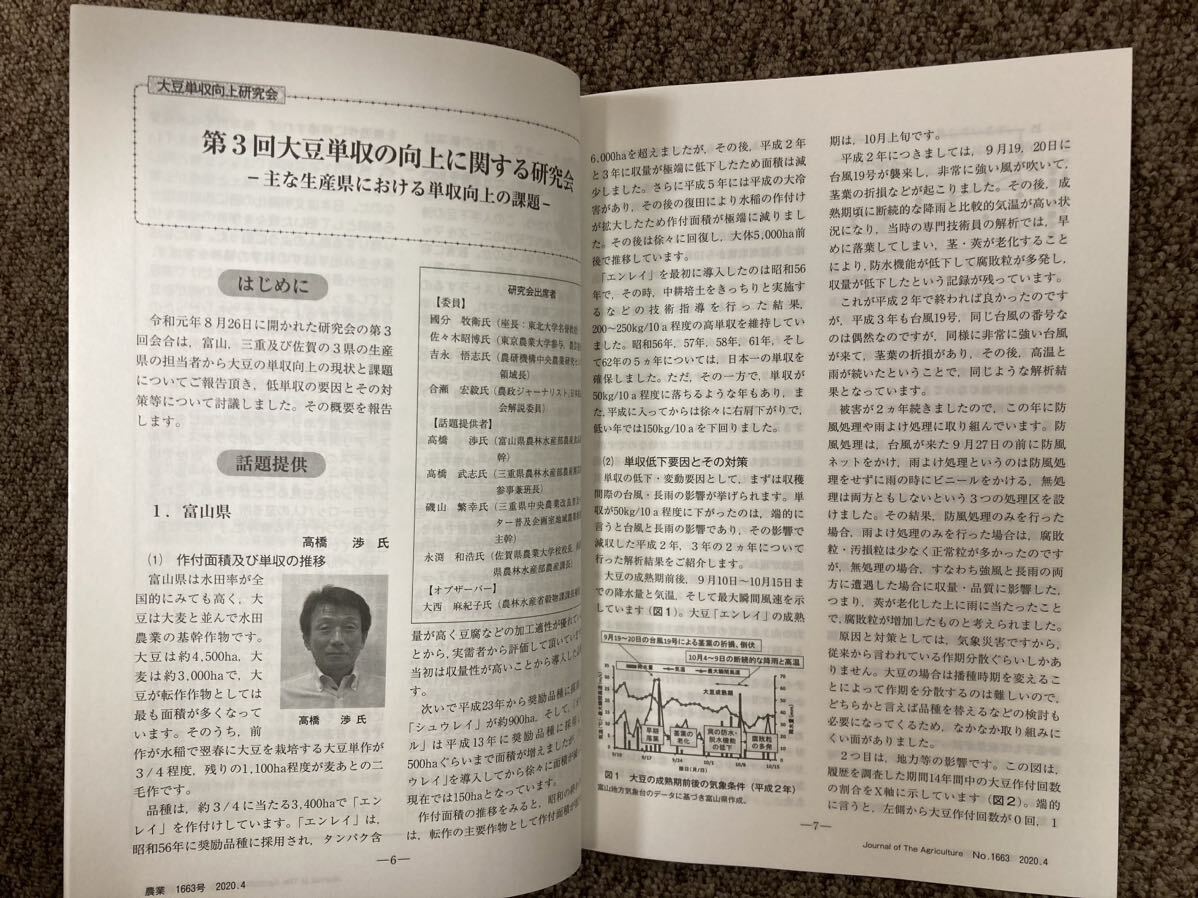 大豆単収向上研究会
第3回大豆単収の向上に関する研究会
−主な生産県における単収向上の課題−
はじめに
令和元年8月26日に開かれた研究会の第3
回会合は，富山，三重及び佐賀の3県の生産
県の担当者から大豆の単収向上の現状と課題
についてご報告頂き，低単収の要因とその対
策等について討議しました。その概要を報告
します。
話題提供
1．富山県
高橋　渉 氏
(1)　作付面積及び単収の推移
富山県は水田率が全
国的にみても高く，大
豆は大麦と並んで水田
農業の基幹作物です。
大豆は約4,500ha，大
麦は約3,000haで，大
豆が転作作物としては
最も面積が多くなって
います。そのうち，前
高橋　渉 氏
作が水稲で翌春に大豆を栽培する大豆単作が
3/4程度，残りの1,100ha程度が麦あとの二
毛作です。
品種は，約3/4に当たる3,400haで「エン
レイ」を作付けしています。「エンレイ」は，
昭和56年に奨励品種に採用され，タンパク含
研究会出席者
【委員】
國分　牧衛氏（座長：東北大学名誉教授）
佐々木昭博氏（東京農業大学参与，
吉永　悟志氏（農研機構中央農業研究
領域長）
合瀬　宏毅氏（農政ジャーナリスト，
会解説委員）
【話題提供者】
高橋　渉氏（富山県農林水産部農産
幹）
高橋　武志氏（三重県農林水産部農産
参事兼班長）
磯山　繁幸氏（三重県中央農業改良普
ター普及企画室地域農業
主幹）
永渕　和浩氏（佐賀県農業大学校校長，
県農林水産部農産課長）
【オブザーバー】
大西　麻紀子氏（農林水産省穀物課課長
量が高く豆腐などの加工適性が優れてい
とから，実需者から評価して頂いています
当初は収量性が高いことから導入した
す。
次いで平成23年から奨励品種に採用
「シュウレイ」が約900ha，そして，「オ
ル」は平成13年に奨励品種に採用
500haぐらいまで面積が増えましたが
ウレイ」を導入してから徐々に面積が減
現在では150haとなっています。
作付面積の推移をみると，昭和の終わ
は，転作の主要作物として作付面積が
―6―
農業　1663号　2020.4
6,000haを超えましたが，その後，平成2年
と3年に収量が極端に低下したため面積は減
少しました。さらに平成5年には平成の大冷
害があり，その後の復田により水稲の作付け
が拡大したため作付面積が極端に減りまし
た。その後は徐々に回復し，大体5,000ha前
後で推移しています。
「エンレイ」を最初に導入したのは昭和56
年で，その時，中耕培土をきっちりと実施す
るなどの技術指導を行った結果，
200〜250kg/10a程度の高単収を維持してい
ました。昭和56年，57年，58年，61年，そ
して62年の5ヵ年については，日本一の単収を
確保しました。ただ，その一方で，単収が
50kg/10a程度に落ちるような年もあり，ま
た，平成に入ってからは徐々に右肩下がりで，
低い年では150kg/10aを下回りました。
(2)　単収低下要因とその対策
単収の低下・変動要因として，まずは収穫
間際の台風・長雨の影響が挙げられます。単
収が50kg/10aに下がったのは，端的に
言うと台風と長雨の影響であり，その影響で
減収した平成2年，3年の2ヵ年について
行った解析結果をご紹介します。
大豆の成熟期前後，9月10日〜10月15日ま
での降水量と気温，そして最大瞬間風速を示
しています（図1）。大豆「エンレイ」の成熟
9月19〜20日の台風19号による茎葉の折損、倒伏
10月4〜9日の断続的な降雨と高温
降水量　気温　最大瞬間風速
大豆成熟期
早期落葉　茎葉の老化　莢の防水・脱水機能の低下　腐敗粒の多発
9/10　9/17　9/24　10/1　10/8　10/15
期日(月/日)
図1　大豆の成熟期前後の気象条件（平成2年）
富山地方気象台のデータに基づき富山県作成。
期は，10月上旬です。
平成2年につきましては，9月19，20日に
台風19号が襲来し，非常に強い風が吹いて，
茎葉の折損などが起こりました。その後，成
熟期頃に断続的な降雨と比較的気温が高い状
況になり，当時の専門技術員の解析では，早
めに落葉してしまい，茎・莢が老化すること
により，防水機能が低下して腐敗粒が多発し，
収量が低下したという記録が残っています。
これが平成2年で終われば良かったのです
が，平成3年も台風19号，同じ台風の番号な
のは偶然なのですが，同様に非常に強い台風
が来て，茎葉の折損があり，その後，高温と
雨が続いたということで，同じような解析結
果となっています。
被害が2ヵ年続きましたので，この年に防
風処理や雨よけ処理に取り組んでいます。防
風処理は，台風が来た9月27日の前に防風
ネットをかけ，雨よけ処理というのは防風処
理をせずに雨の時にビニールをかける，無処
理は両方ともしないという3つの処理区を設
けました。その結果，防風処理のみを行った
場合，雨よけ処理のみを行った場合は，腐敗
粒・汚損粒は少なく正常粒が多かったのです
が，無処理の場合，すなわち強風と長雨の両
方に遭遇した場合に収量・品質に影響した，
つまり，莢が老化した上に雨に当たったこと
で，腐敗粒が増加したものと考えられました。
原因と対策としては，気象災害ですから，
従来から言われている作期分散ぐらいしかあ
りません。大豆の場合は播種時期を変えるこ
とによって作期を分散するのは難しいので，
どちらかと言えば品種を替えるなどの検討も
必要になってくるため，なかなか取り組みに
くい面がありました。
2つ目は，地力等の影響です。この図は，
履歴を調査した期間14年間中の大豆作付回数
の割合をX軸に示しています（図2）。端的
に言うと，左側から大豆作付回数が0回，1
―7―
Journal of The Agriculture　No.1663　2020.4